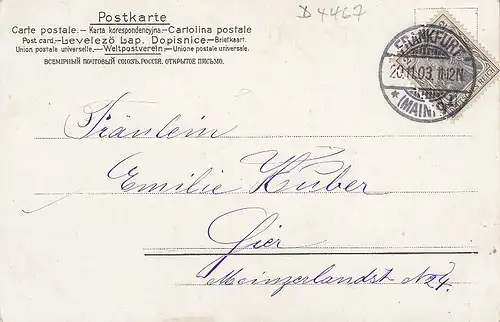 D 4467
Postkarte
Carte postale. – Karta korespondencyjna. – Cartolina postale
Post card. – Levelező Lap. Dopisnice. – Briefkaart.
Union postale universelle. – Weltpostverein – Unione postale universale.
ВСЕМІРНЫЙ ПОЧТОВЫЙ СОЮЗЪ. РОССІЯ. ОТКРЫТОЕ ПИСЬМО.
FRANKFURT
20.11.03 11-12N.
* (MAIN)
Fräulein
Emilie Huber
Hier
Mainzerlandst. N